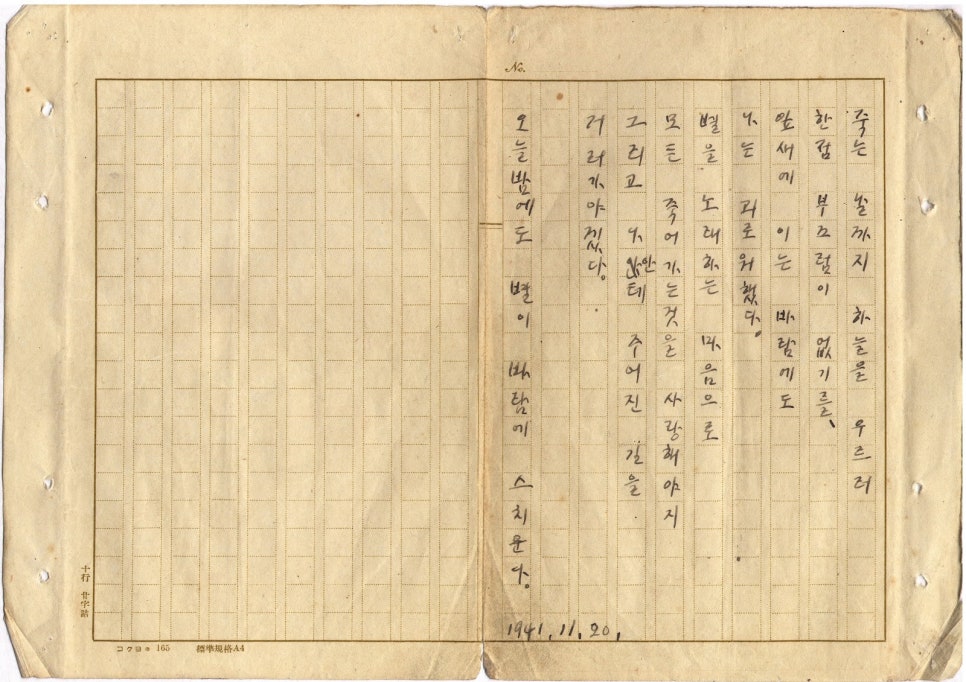 No.
죽는 날까지 하늘을 우르러
한점 부끄럼이 없기를、
앞새에 이는 바람에도
나는 괴로워했다。
별을 노래하는 마음으로
모든 죽어가는것을 사랑해야지
그리고 나안테 주어진 길을
거러가야겠다。
오늘밤에도 별이 바람에 스치운다。
1941, 11, 20,
十行 廿字詰
コクヨの 165 標準規格A4